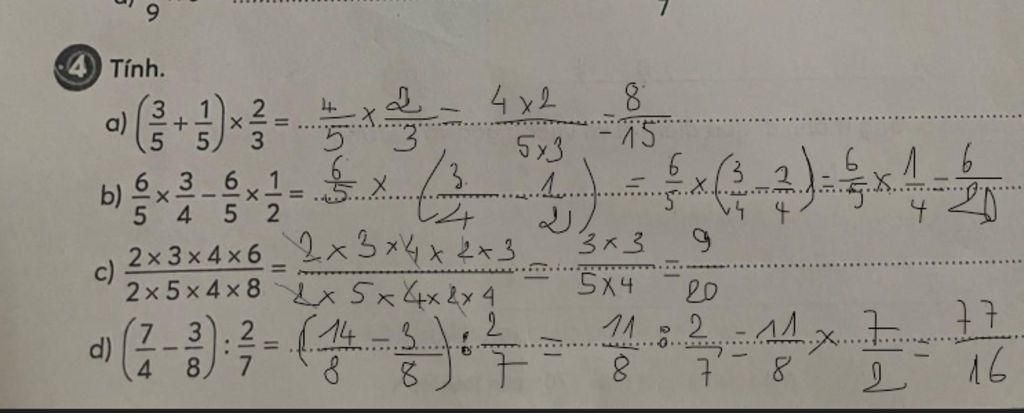 9 7
4 Tính.
a) (3/5 + 1/5) × 2/3 = 4/5 × 2/3 = 4×2/5×3 = 8/15
b) 6/5 × 3/4 − 6/5 × 1/2 = 6/5 × (3/4 − 1/2) = 6/5 × (3/4 − 2/4) = 6/5 × 1/4 = 6/20
c) 2×3×4×6/2×5×4×8 = 2×3×4×2×3/2×5×4×2×4 = 3×3/5×4 = 9/20
d) (7/4 − 3/8) : 2/7 = (14/8 − 3/8) : 2/7 = 11/8 : 2/7 = 11/8 × 7/2 = 77/16